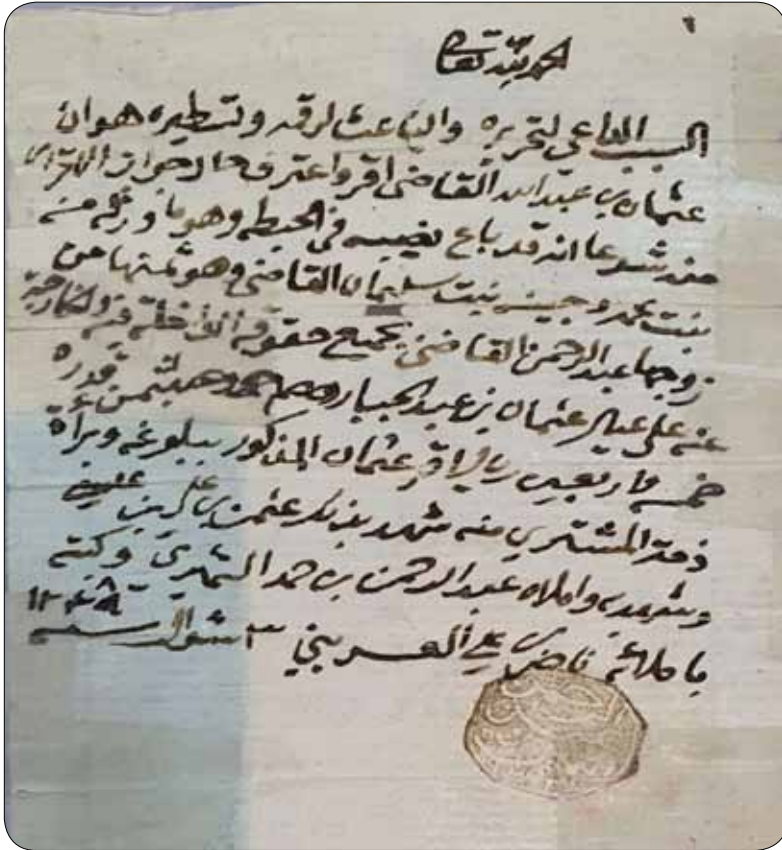 الحمد لله تعالى
السبب الداعي لتحريره والباعث لرقمه وتسطيره هو ان
عثمان بن عبدالله القاضي اقر واعترف حال جواز الاقرار
منه شرعا انه قد باع نصيبه في الحيطه وهو ما ورثه من
بنت سليمان القاضي وهو ثمنها من
زوجها عبدالرحمن القاضي بجميع حقوقه الداخلة فيه والخارجة
عنه على عثمان بن عبدالجبار بثمن قدره
خمسه واربعين ريال اقر عثمان المذكور ببلوغه وبرأة
ذمة المشتري منه شهد بذلك عثمن بن
وشهد به واملاه عبدالرحمن بن حمد الشمري وكتبه
باملائه ناصر بن علي العريني ٣ شوال سنه